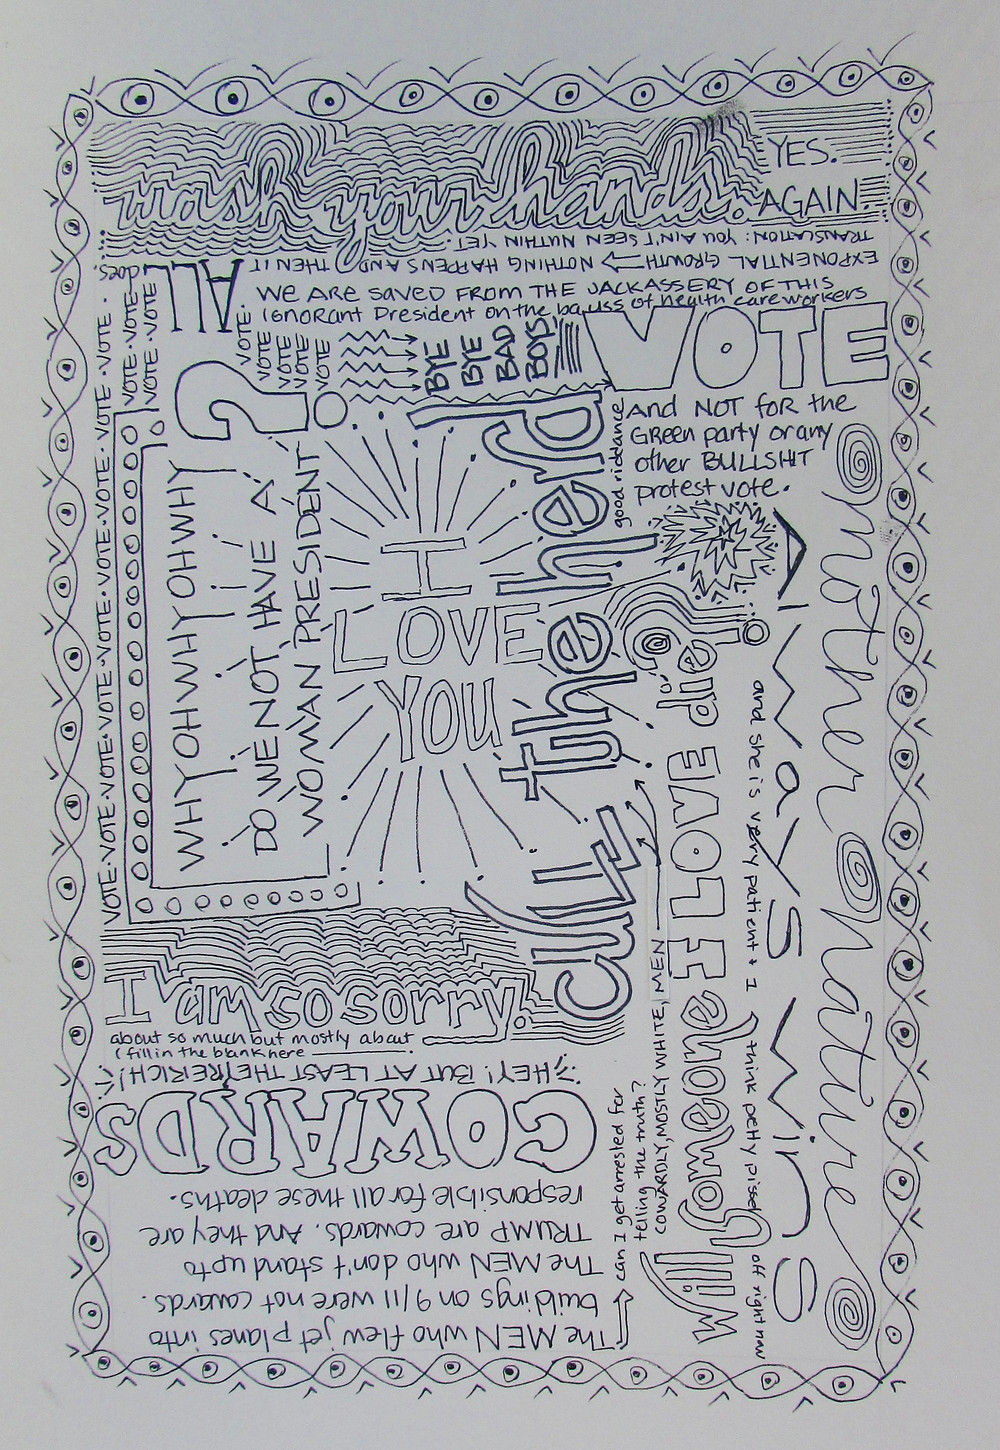 wash your hands.
YES.
AGAIN
TRANSLATION: YOU AIN'T SEEN NUTHIN YET.
EXPONENTIAL GROWTH → NOTHING HAPPENS AND THEN IT
ALL
does.
WE ARE SAVED FROM THE JACKASSERY OF THIS
IGNORANT President on the of health care workers
VOTE
and NOT for the
GREEN party or any
other BULLSHIT
protest vote.
VOTE·VOTE·VOTE·VOTE·VOTE·VOTE·VOTE·VOTE·VOTE·VOTE·VOTE·VOTE.
VOTE·VOTE
VOTE·VOTE
VOTE.
VOTE
VOTE
VOTE
VOTE
BYE
BYE
BAD
BOYS
?
WHY OH WHY WHY OH WHY
DO WE NOT HAVE A
WOMAN PRESIDENT
I
LOVE
YOU
cull the herd
good riddance
I am so sorry.
about so much but mostly about
(fill in the blank here ______.
HEY! BUT AT LEAST THEY'RE RICH!
COWARDS
The MEN who flew jet planes into
buildings on 9/11 were not cowards.
The MEN who don't stand up to
TRUMP are cowards. And they are
responsible for all these deaths.
can I get arrested for
telling the truth?
COWARDLY, MOSTLY WHITE, MEN
Will someone I LOVE die?
and she is very patient + I think petty pissed off right now
Always wins
mother nature